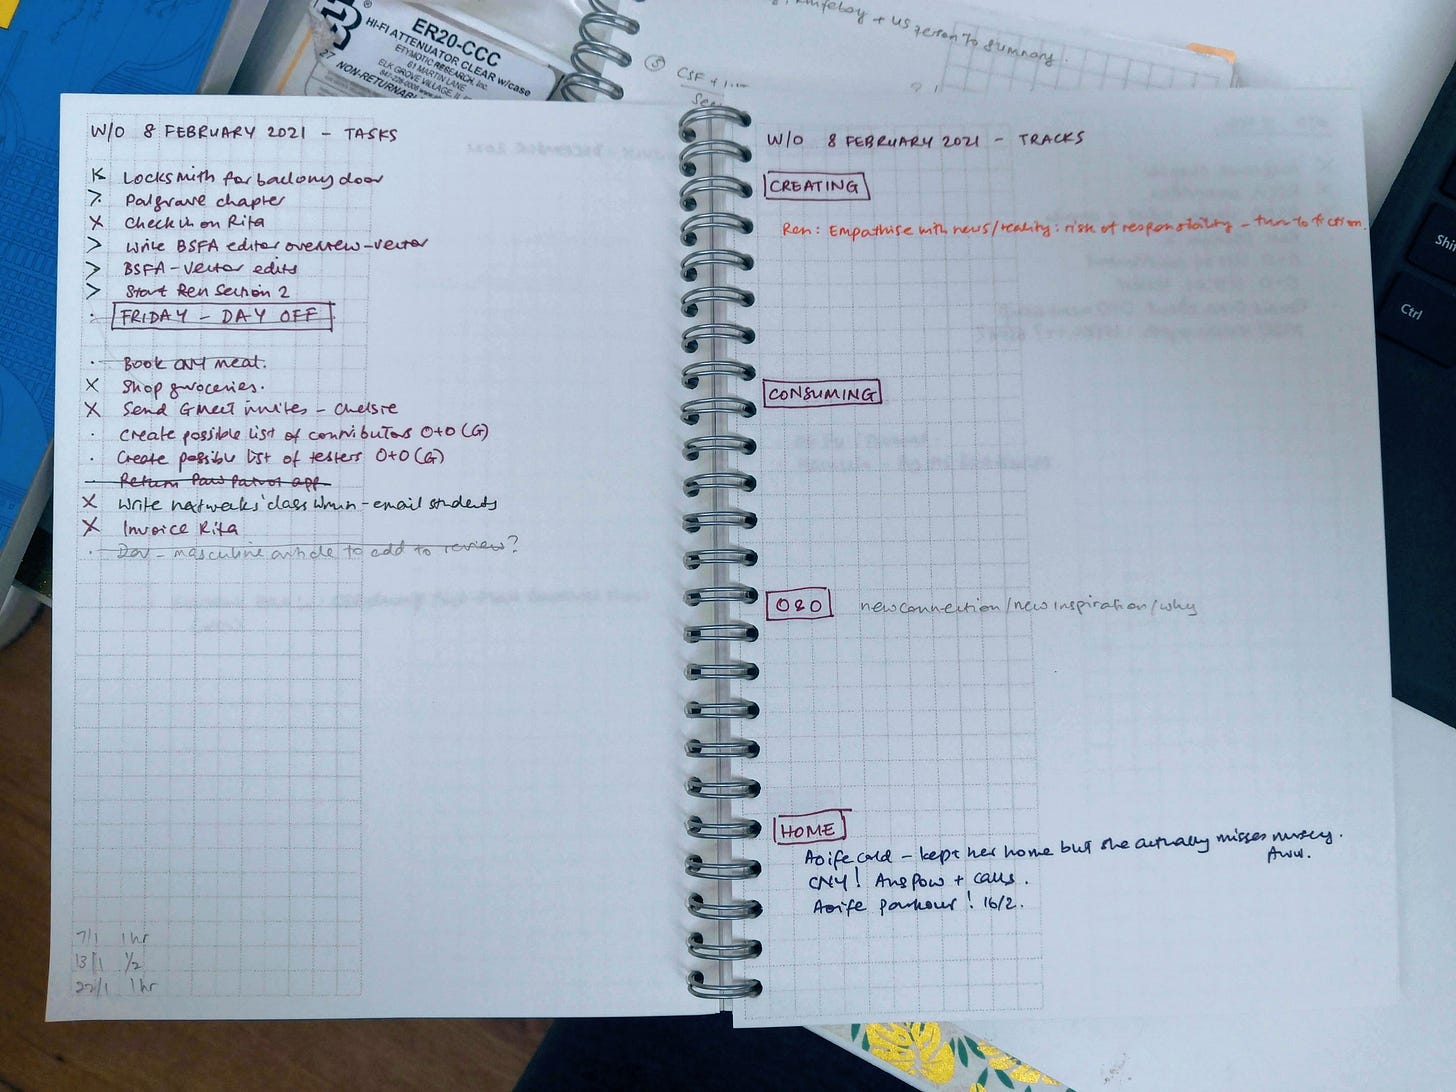 ER20-CCC
HI-FI ATTENUATOR CLEAR w/case
ETYMOTIC RESEARCH, Inc.
61 MARTIN LANE
ELK GROVE VILLAGE, IL
NON-RETURNAB
27
+ US person to summary.
⑤ CSF +
W/O 8 FEBRUARY 2021 - TASKS
Locksmith for balcony door
> Palgrave chapter
X Check in on Rita
> Write BSFA editor overview - vector
> BSFA - Vector edits
> Start Ren Section 2
· FRIDAY - DAY OFF
· Book CNY meal.
X Shop groceries.
X Send GMeet invites - Chelsie
· Create possible list of contributors O+O (G)
· Create possible list of testers O+O (G)
· Return Paw Patrol app
X Write networks' class - email students
X Invoice Rita
· masculine article to add to review?
7/1 1 hr
13/1 1/2
22/1 1 hr
W/O 8 FEBRUARY 2021 - TRACKS
CREATING
Ren: Empathise with news/reality: risk of responsibility - turn to fiction.
CONSUMING
O&O new connection/new inspiration/why
HOME
Aoife cold - kept her home but she actually misses nursery.
Aww.
CNY! Ang Pow + calls.
Aoife parkour! 16/2.
Shi
Ctrl